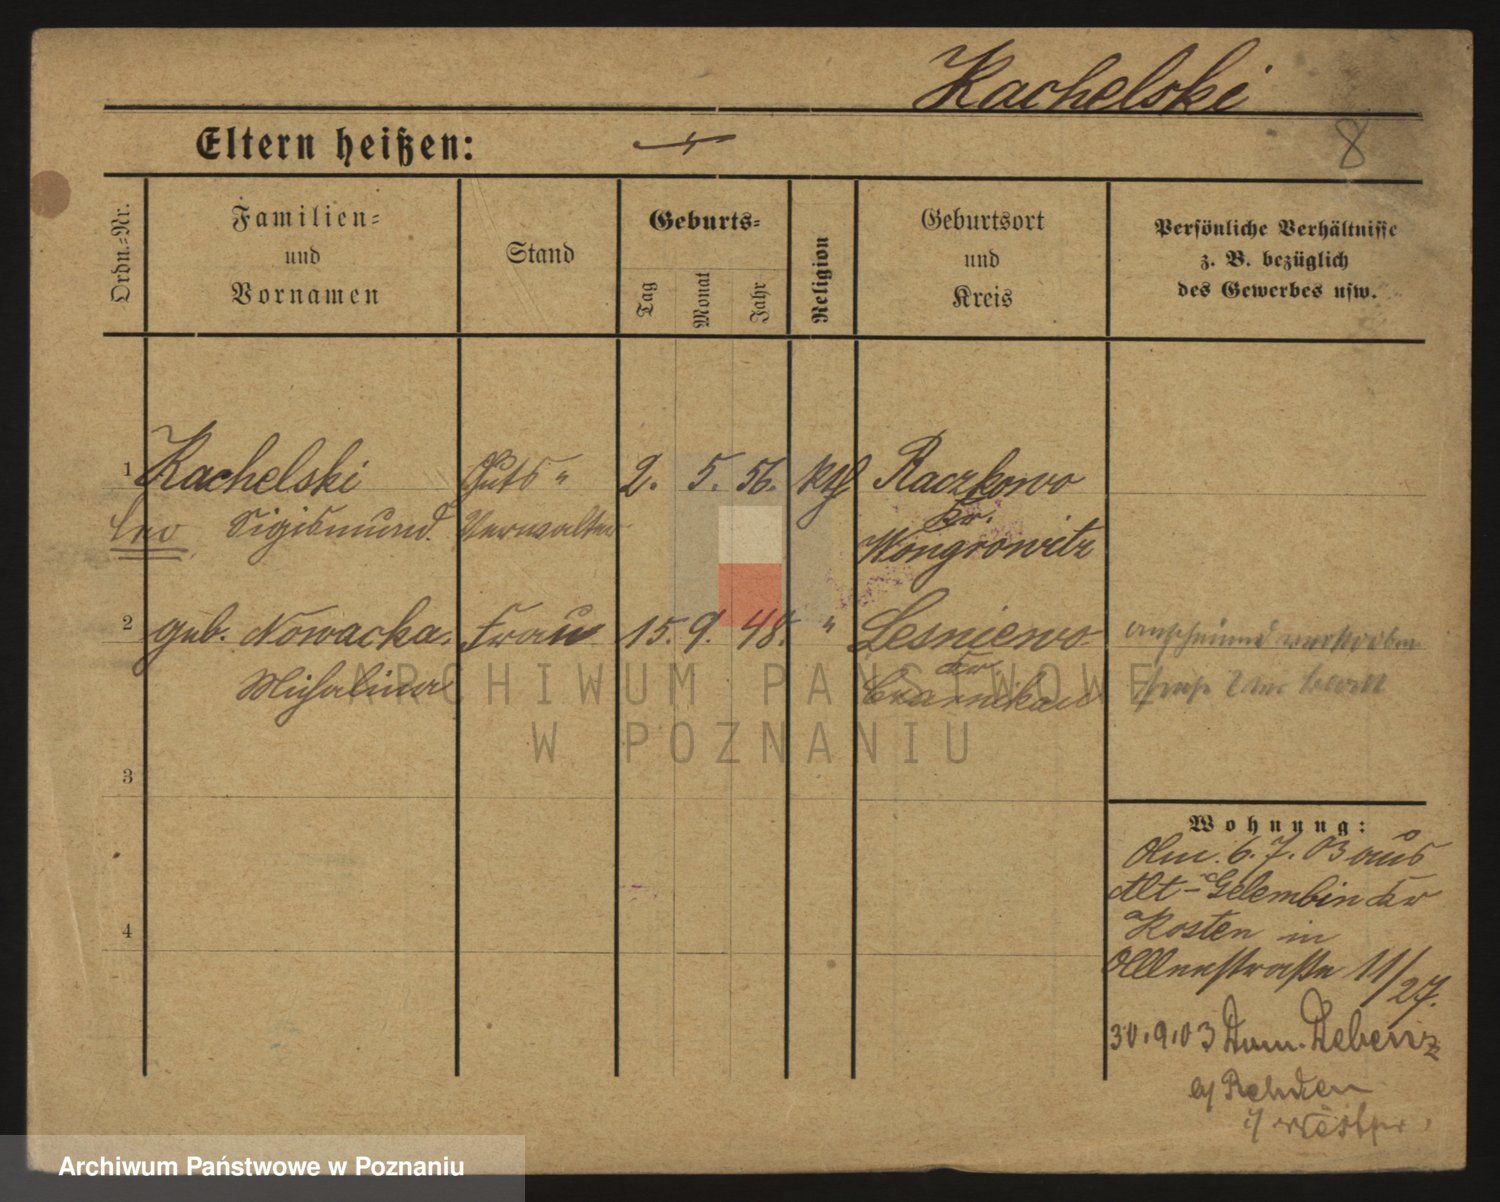 Kachelski
8
Eltern heißen:
Ordn.-Nr.
Familien-
und
Vornamen
Stand
Geburts-
Tag
Monat
Jahr
Religion
Geburtsort
und
Kreis
Persönliche Verhältnisse
z. B. bezüglich
des Gewerbes usw.
1 Kachelski Guts " 2. 5. 56. kth Raczkowo
Leo Sigismund. Verwalter Kr.
Wongrowitz
2 geb. Nowacka. Frau 15. 9. 48. " Lesniewo
Michalina Kr
Czarnikau
anscheinend verstorben
3
4
Wohnung:
Am. 6. 7. 03 aus
Alt-Gelembin Kr
Kosten in
Alleestraße 11/27.
30.9.03 Dom. Debenz
b/ Rehden
i/ Westpr.
ARCHIWUM PAŃSTWOWE
W POZNANIU
Archiwum Państwowe w Poznaniu